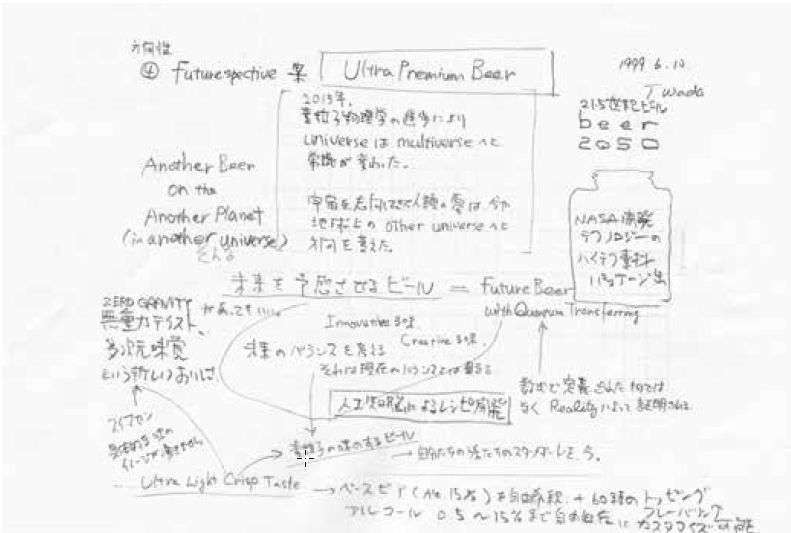 方向性
④ Futurespective 案 Ultra Premium Beer
1999 6.10
T Wada
21.5世紀ビール
beer
2050
2015年、
素粒子物理学の進歩により
universe は multiverse へと
常識が変わった。
宇宙を
地球上の other universe へと
方向を変えた。
Another Beer
on the
Another Planet
(in another universe)
そんな
NASA開発
テクノロジーの
ハイテク素材
パッケージ
未来を予感させるビール = Future Beer
with Quantum Transferring
ZERO GRAVITY
無重力テイスト、
多次元味覚
という新しいおいしさ
があってもいい
Innovative な味
Creative な味
未来のバランスを考える
それは現在のバランスとは異なる
人工知能によるレシピ開発
数式で定義された
なく Reality によって証明される
素粒子の味のするビール
→ 自分たちの
Ultra Light Crisp Taste → ベースビア (Alc 15%) を自由希釈 + 60種のトッピング
フレーバリング
アルコール 0.5〜15%まで自由自在にカスタマイズ可能